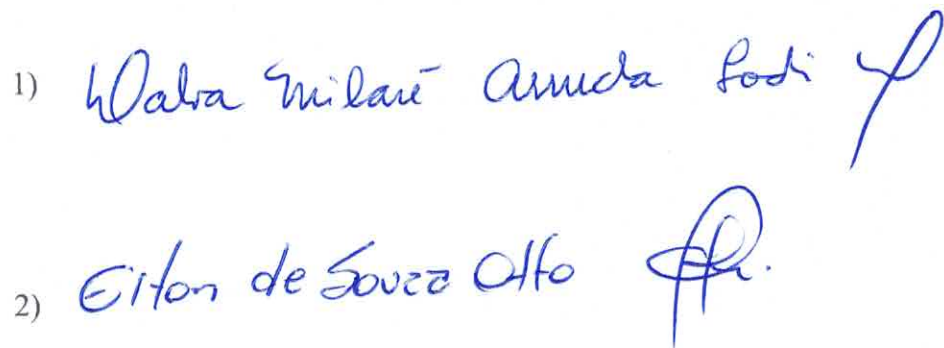 1) Dalva Milaré Arruda Sodi
2) Eilon de Souza Otto